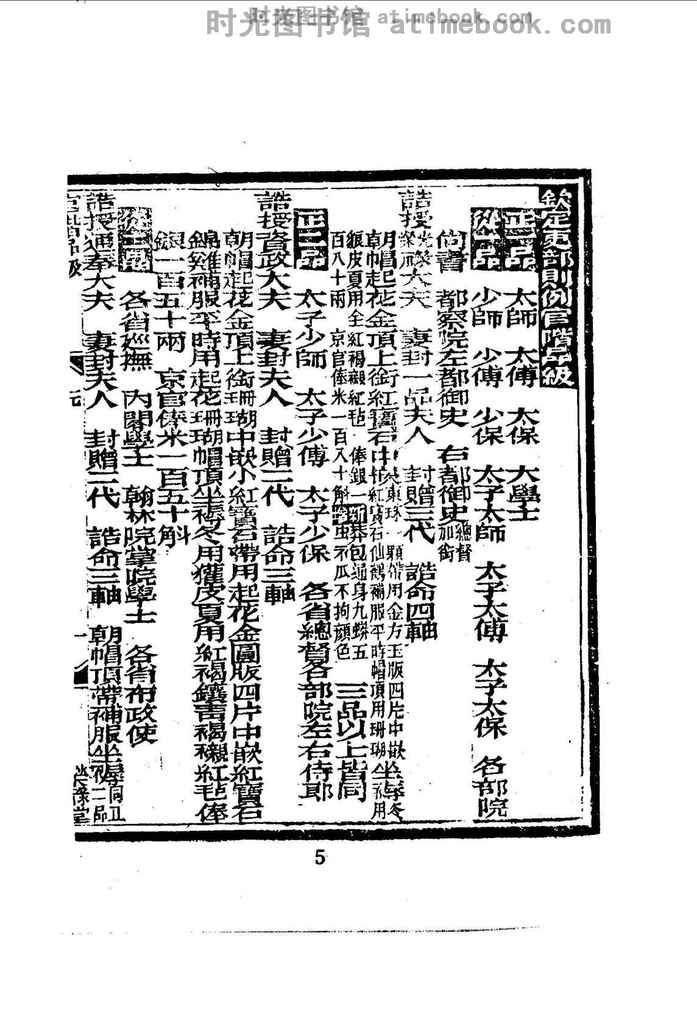 时光图书馆 atimebook.com
欽定吏部則例官階品級
正一品 太師 太傅 太保 大學士
從一品 少師 少傅 少保 太子太師 太子太傅 太子太保 各部院
尚書 都察院左都御史 右都御史總督加銜
誥授光祿大夫 妻封一品夫人 封贈三代 誥命四軸
朝帽起花金頂上銜紅寶石中嵌東珠一顆帶用金方玉版四片中嵌
紅寶石仙鶴補服平時帽頂用珊瑚坐褥冬用
狼皮夏用全紅褐襯紅毡 俸銀一
百八十兩 京官俸米一百八十斛
蟒袍通身九蟒五
爪不拘顏色 三品以上皆同
正二品 太子少師 太子少傅 太子少保 各省總督各部院左右侍郎
誥授資政大夫 妻封夫人 封贈二代 誥命三軸
朝帽起花金頂上銜珊瑚中嵌小紅寶石帶用起花金圓版四片中嵌紅寶石
錦雞補服平時用起花珊瑚帽頂坐褥冬用獾皮夏用紅褐鑲青褐襯紅毛毡俸
銀一百五十兩 京官俸米一百五十斛
從二品 各省巡撫 內閣學士 翰林院掌院學士 各省布政使
誥授通奉大夫 妻封夫人 封贈二代 誥命三軸 朝帽頂帶補服坐褥同正二品
官階品級
5